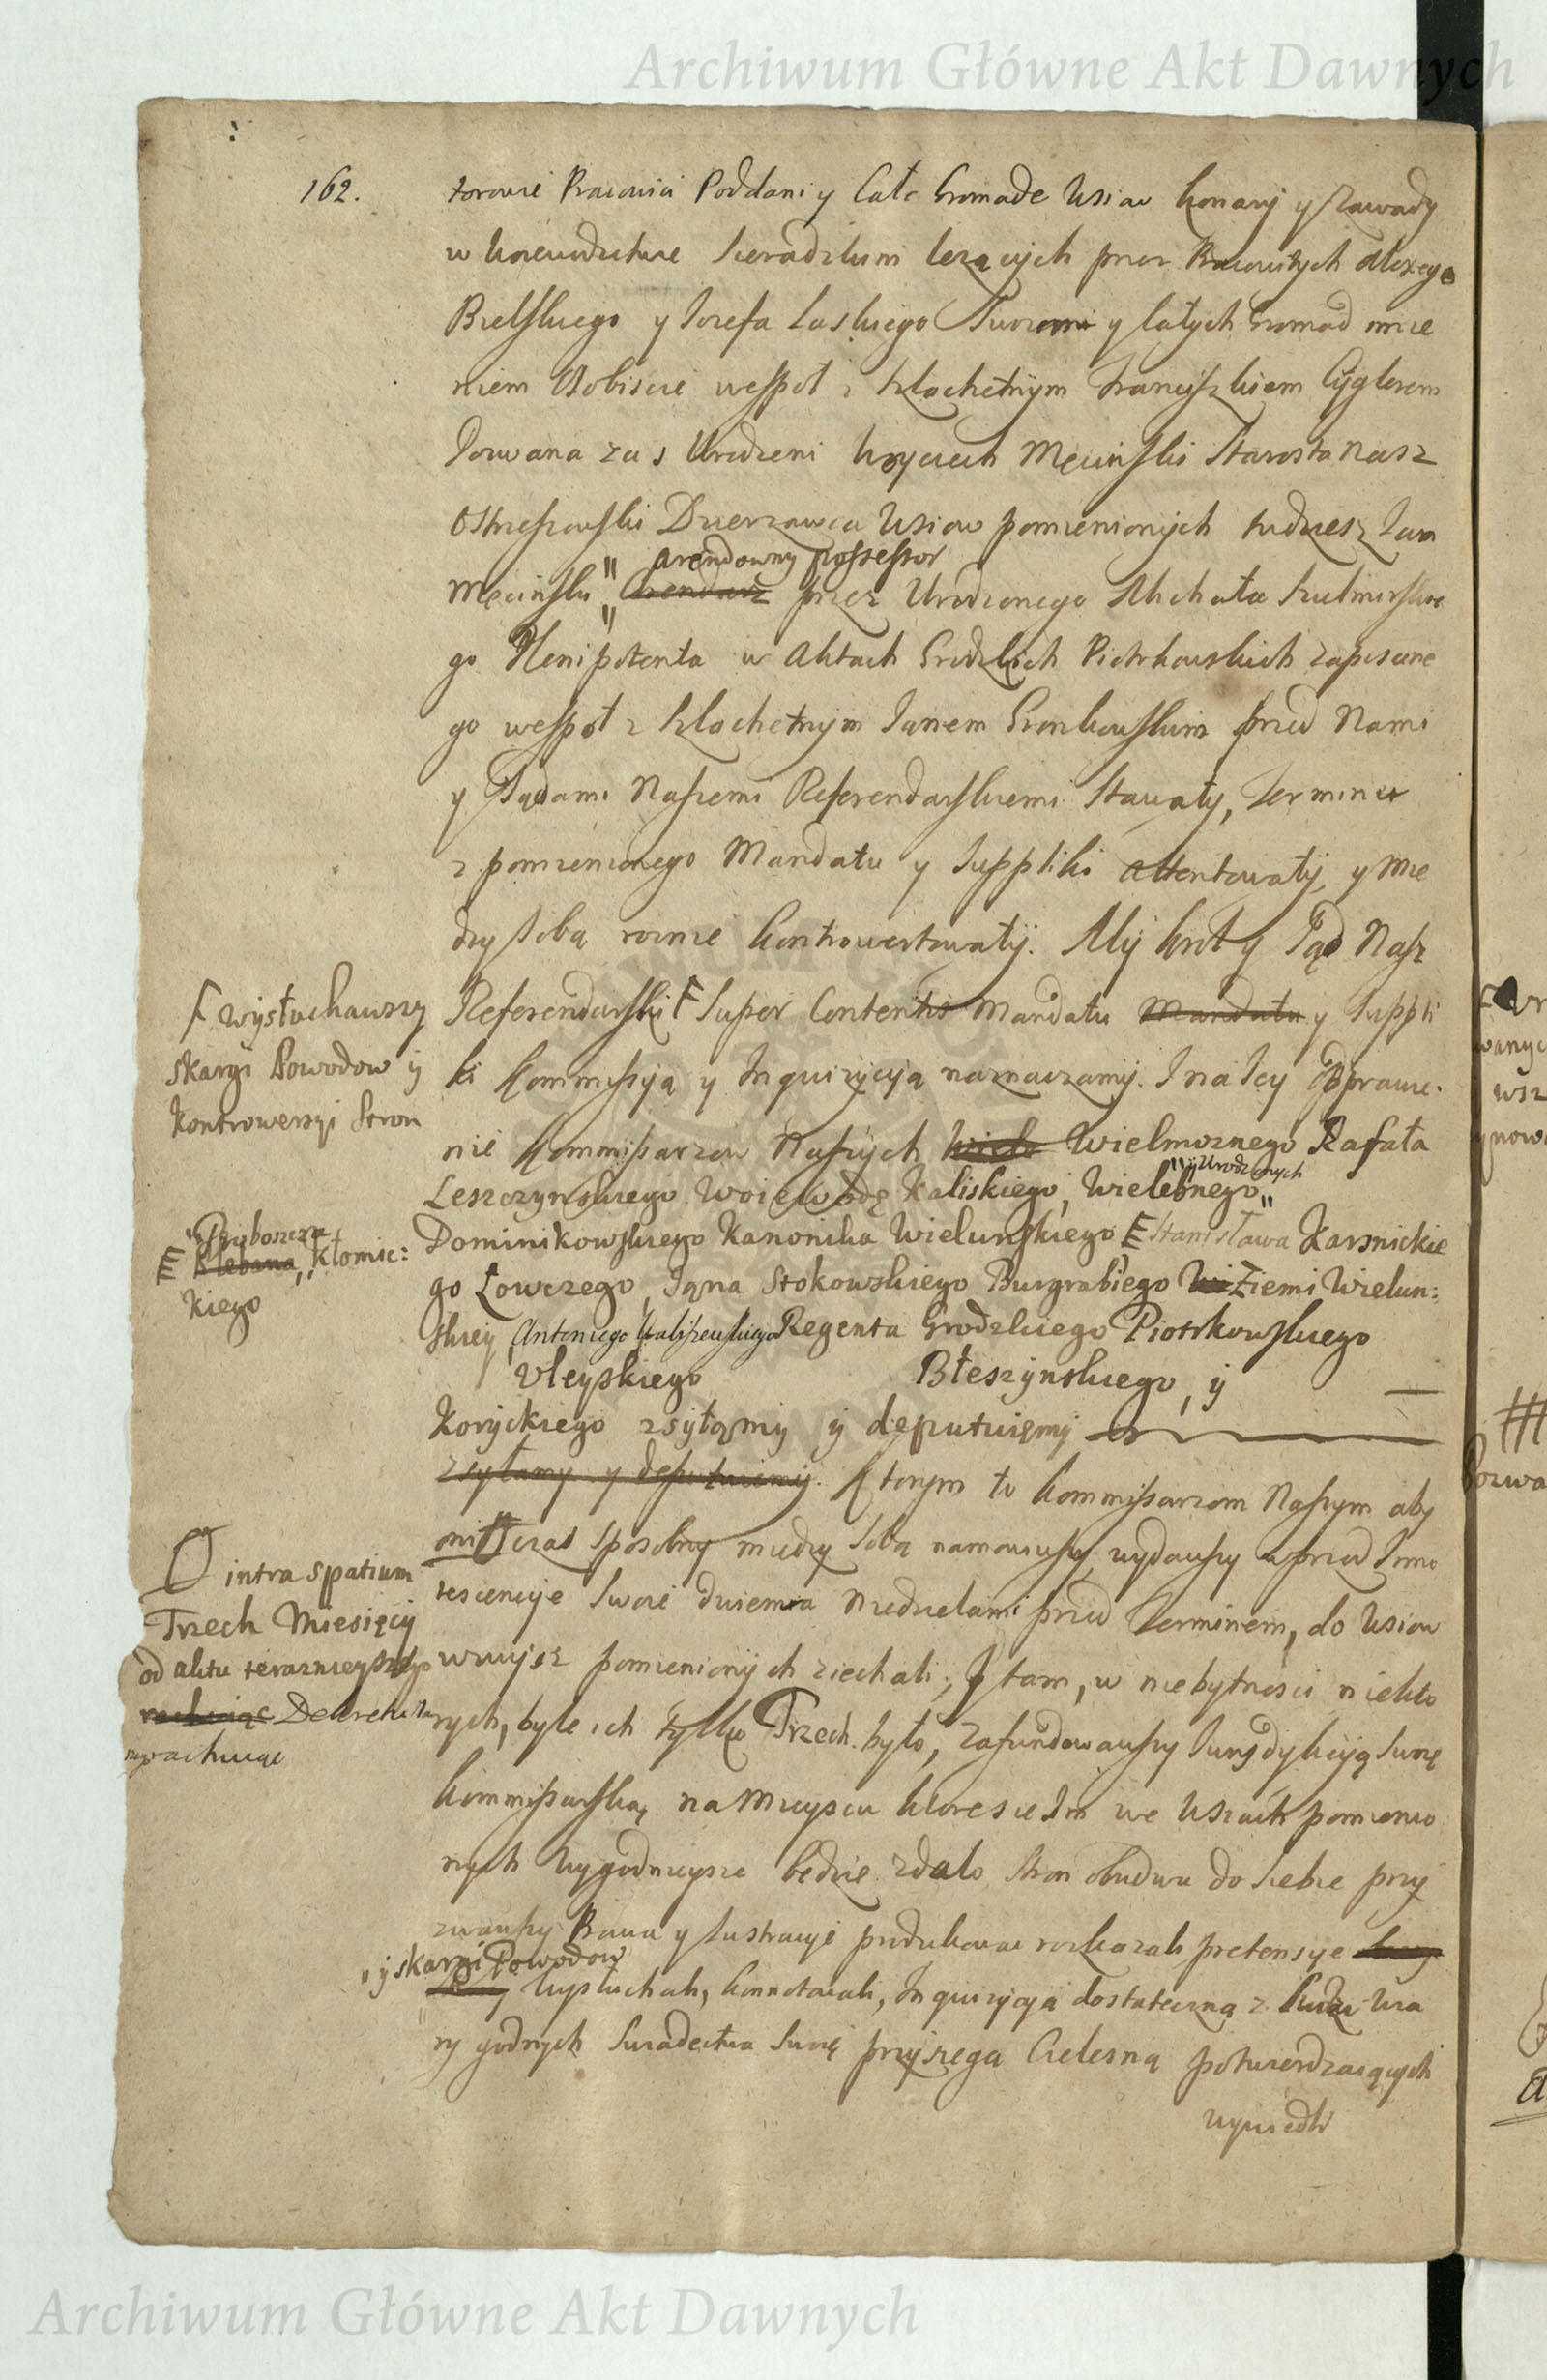 Archiwum Główne Akt Dawnych
162.
torowie Pracowici Poddani y Całe Gromade Wsiow Konary y Zawady
w Woiewodztwie Sieradzkim lezących przez Pracowitych Alexego
Bielskiego y Jozefa Laskiego Swoim y Całych Gromad imie
niem Osobiscie wespoł z Szlachetnym Franciszkiem Cyglerem
Pozwana zas Urodzeni Woyciech Męcinski Starosta Nasz
Ostrzeszowski Dzierzawca Wsiow pomienionych tudziesz Jan
arendowny possessor
Męcinski Arendarz przez Urodzonego Michała
go Plenipotenta w Aktach Grodzkich Piotrkowskich zapisane
go wespoł z Szlachetnym Janem Gronkowskim przed Nami
y Sądami Naszemi Referendarskiemi Stawały, Termin
z pomienionego Mandatu y Suppliki attentowały, y Mie
dzy Sobą roznie kontrowertowały. My Krol y Sąd Nasz
Referendarski Super Contentis Mandatu Mandatu y Suppli
ki Kommissyą y Inquizycyją naznaczamy. Na Odprawie
nie Kommissarzow Naszych Wielmoznego Rafała
y Urodzonych
Leszczynskiego Woiewodę Kaliskiego, Wielebnego
Dominikowskiego Kanonika Wielunskiego Stanisława Karsnickie
go Łowczego, Jana Stokowskiego Burgrabiego Wi Ziemi Wielun:
skiey Antoniego Kaliszewskiego Regenta Grodzkiego Piotrkowskiego
Uleyskiego Błeszynskiego, ÿ
Koryckiego zsyłąmy ÿ deputuięmÿ
zsyłamy y deputuiemy. Ktorym to Kommissarzom Naszym aby
oni czas sposobny miedzy Sobą namowiwszy, wydawszy wprzod Inno
tescencyje Swoie dwiema Niedzielami przed Terminem, do Wsiow
wzwysz pomienionych ziechali, y tam, w niebytnosci niekto
rych, byle ich tylko Trzech było, Zafundowawszy Jurysdykcyją Swoię
Kommissarską, na Mieyscu ktore sie Im we Wsiach pomienio
nych wygodnieysze będzie zdało Stron obudwu do siebie przy
zwawszy Prawa y Lustracyje produkować roskazali pretensye
y skargi Powodow
Wysłuchali, Konnotowali, Inquizycyją dostateczną z Ludzi wia
ry godnych Swiadectwa Swoię przysiega Cielesną potwierdzaiących
wywiedli
wysłuchawszy
Skargi Powodow ÿ
Kontrowersyi Stron
Proboszcza
Plebana Kłomic:
kiego
intra spatium
Trzech Miesięcy
od aktu terazniejszego
rachuiąc Dekretu
rachuiąc
Archiwum Główne Akt Dawnych